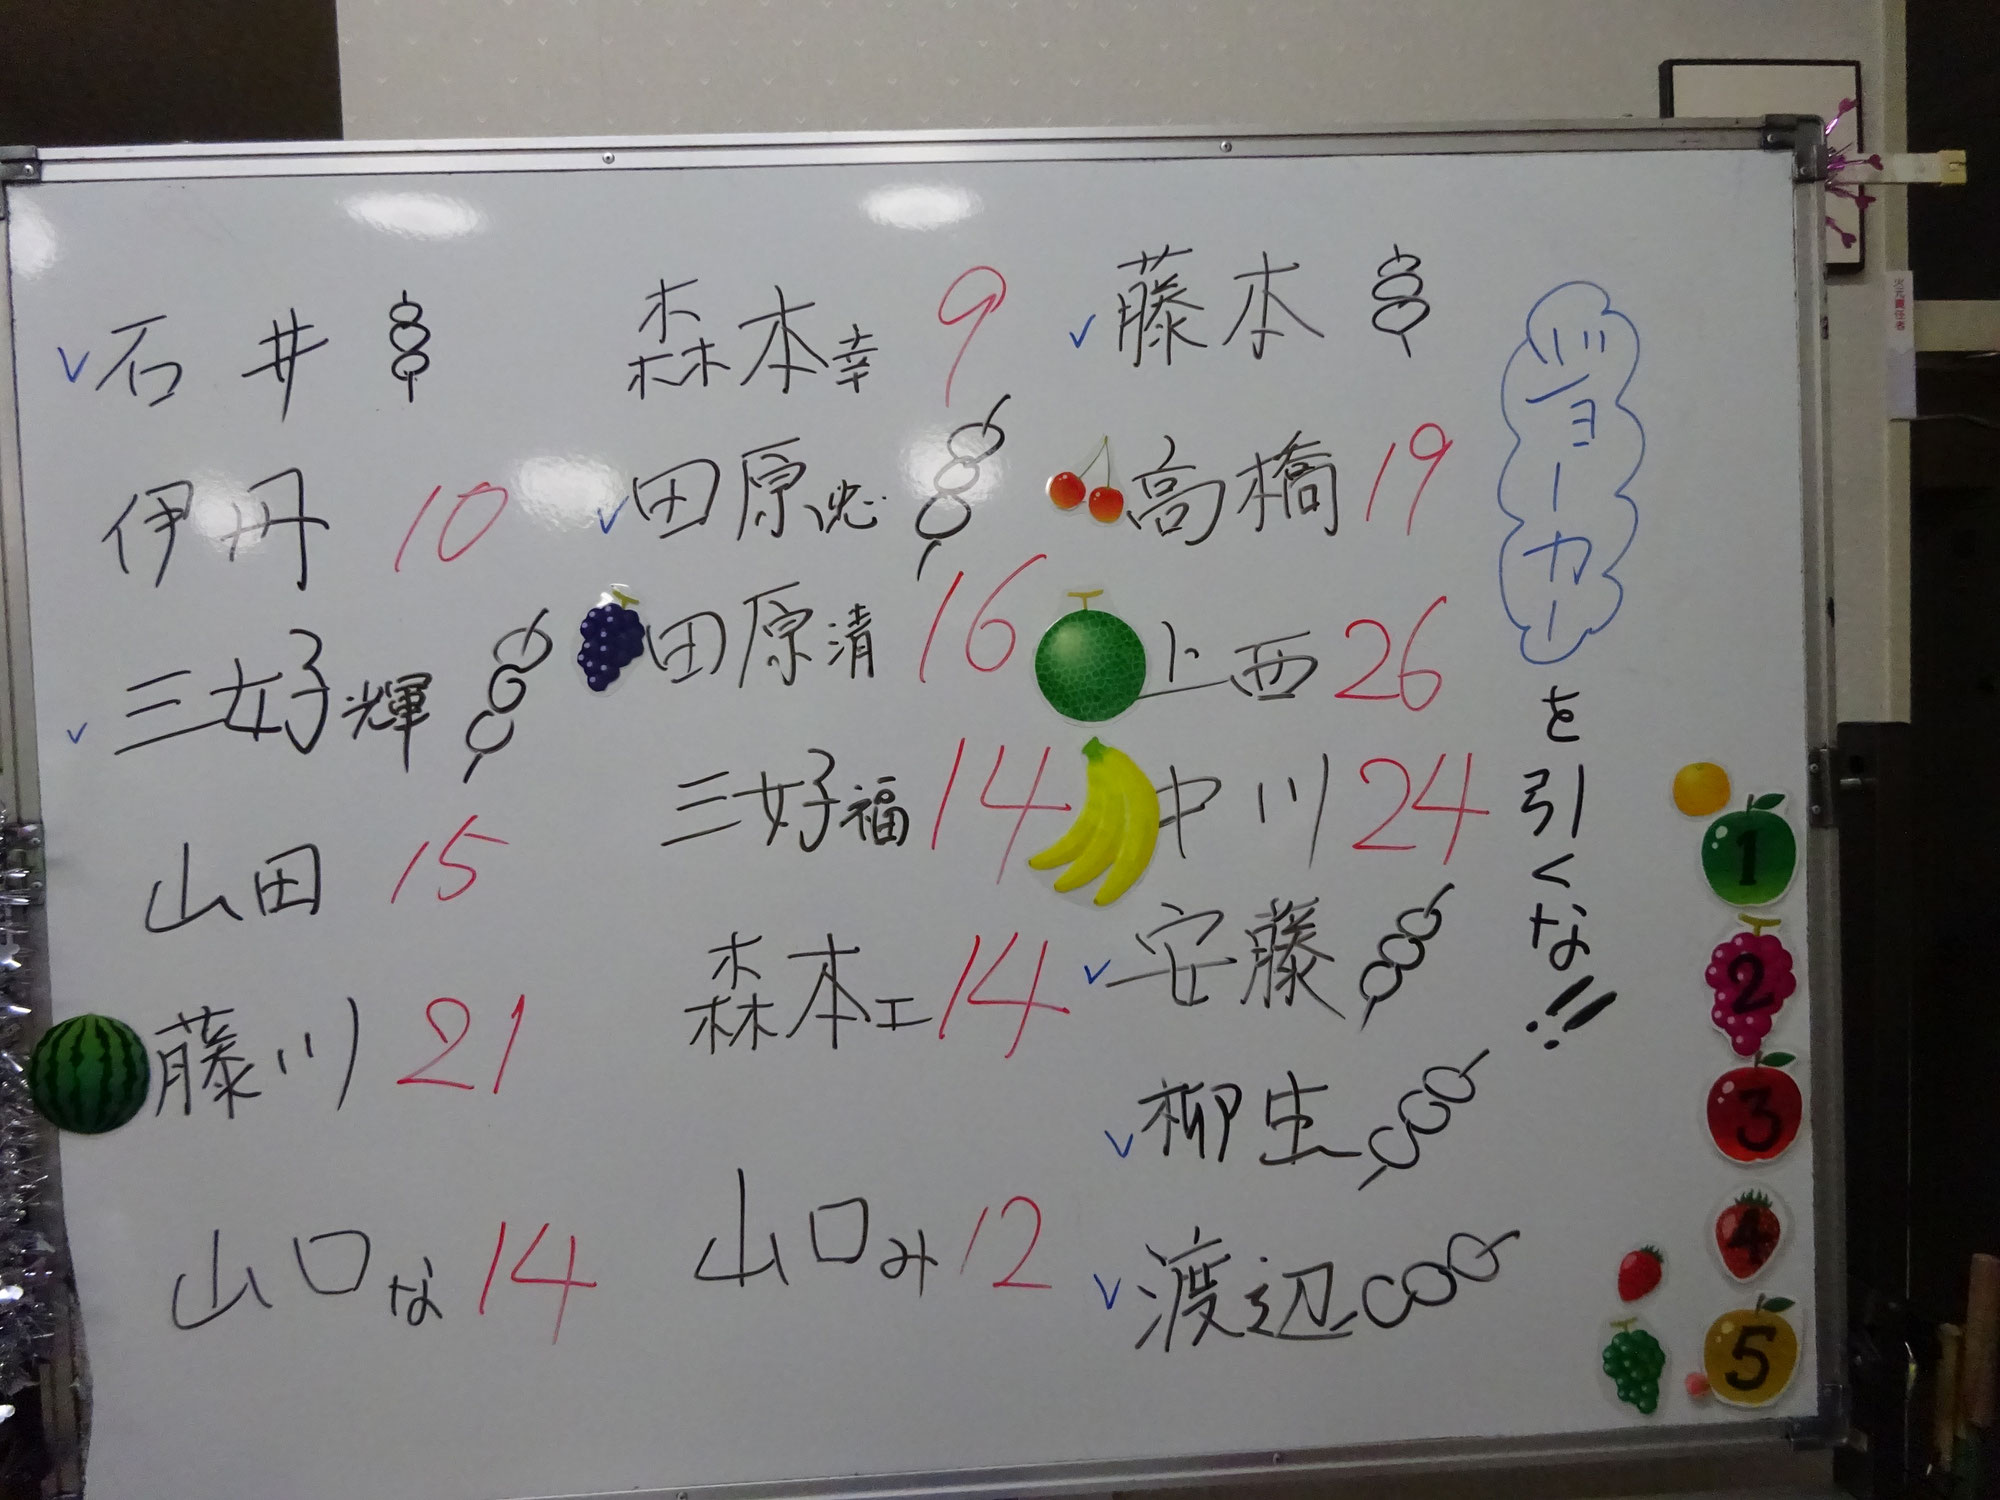 ジョーカーを引くな!!
石井
伊丹 10
三好輝
山田 15
藤川 21
山口な 14
森本幸 9
田原
田原清 16
三好福 14
森本エ 14
山口み 12
藤本
高橋 19
上西 26
中川 24
安藤
柳生
渡辺
1
2
3
4
5
火元責任者